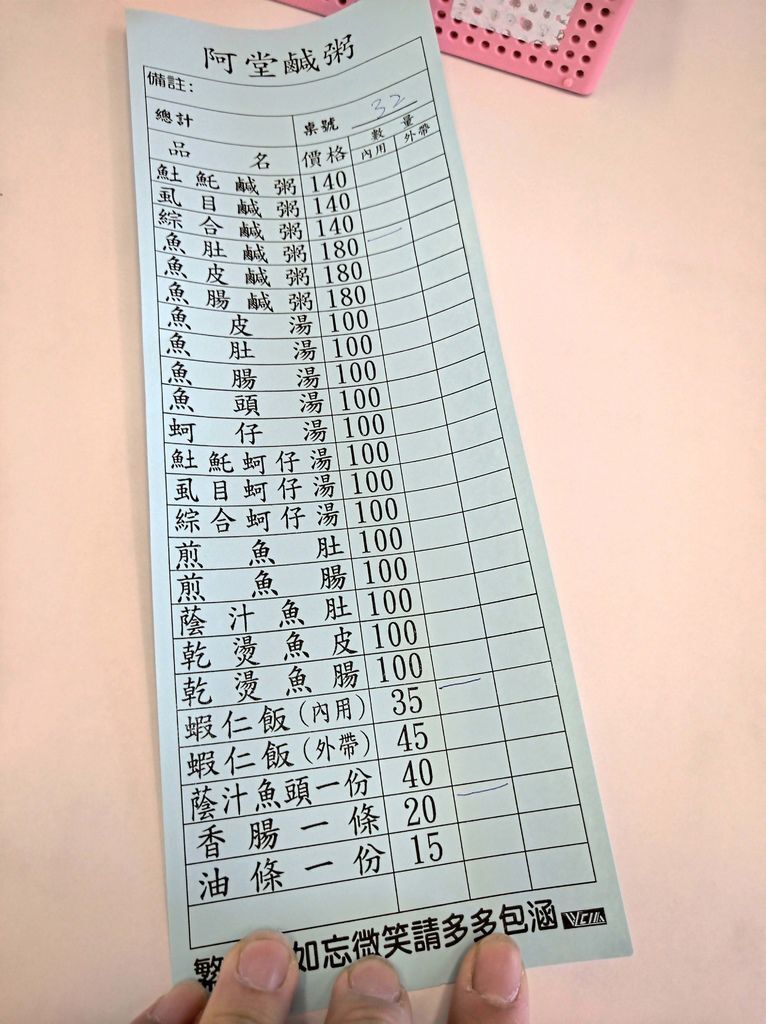 阿堂鹹粥
備註:
總計 桌號 32 數量
品名 價格 內用 外帶
𩵚魠鹹粥 140
虱目鹹粥 140
綜合鹹粥 140
魚肚鹹粥 180
魚皮鹹粥 180
魚腸鹹粥 180
魚皮湯 100
魚肚湯 100
魚腸湯 100
魚頭湯 100
蚵仔湯 100
𩵚魠蚵仔湯 100
虱目蚵仔湯 100
綜合蚵仔湯 100
煎魚肚 100
煎魚腸 100
蔭汁魚肚 100
乾燙魚皮 100
乾燙魚腸 100
蝦仁飯(內用) 35
蝦仁飯(外帶) 45
蔭汁魚頭一份 40
香腸一條 20
油條一份 15
繁 如忘微笑請多多包涵